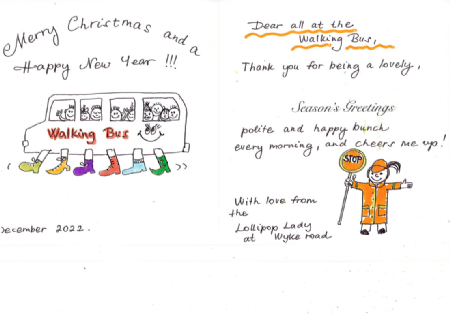 Merry Christmas and a
Happy New Year !!!
Walking Bus
December 2022.
Dear all at the
Walking Bus,
Thank you for being a lovely,
Season's Greetings
polite and happy bunch
every morning, and cheers me up!
STOP
With love from
the
Lollipop Lady
at Wyke road